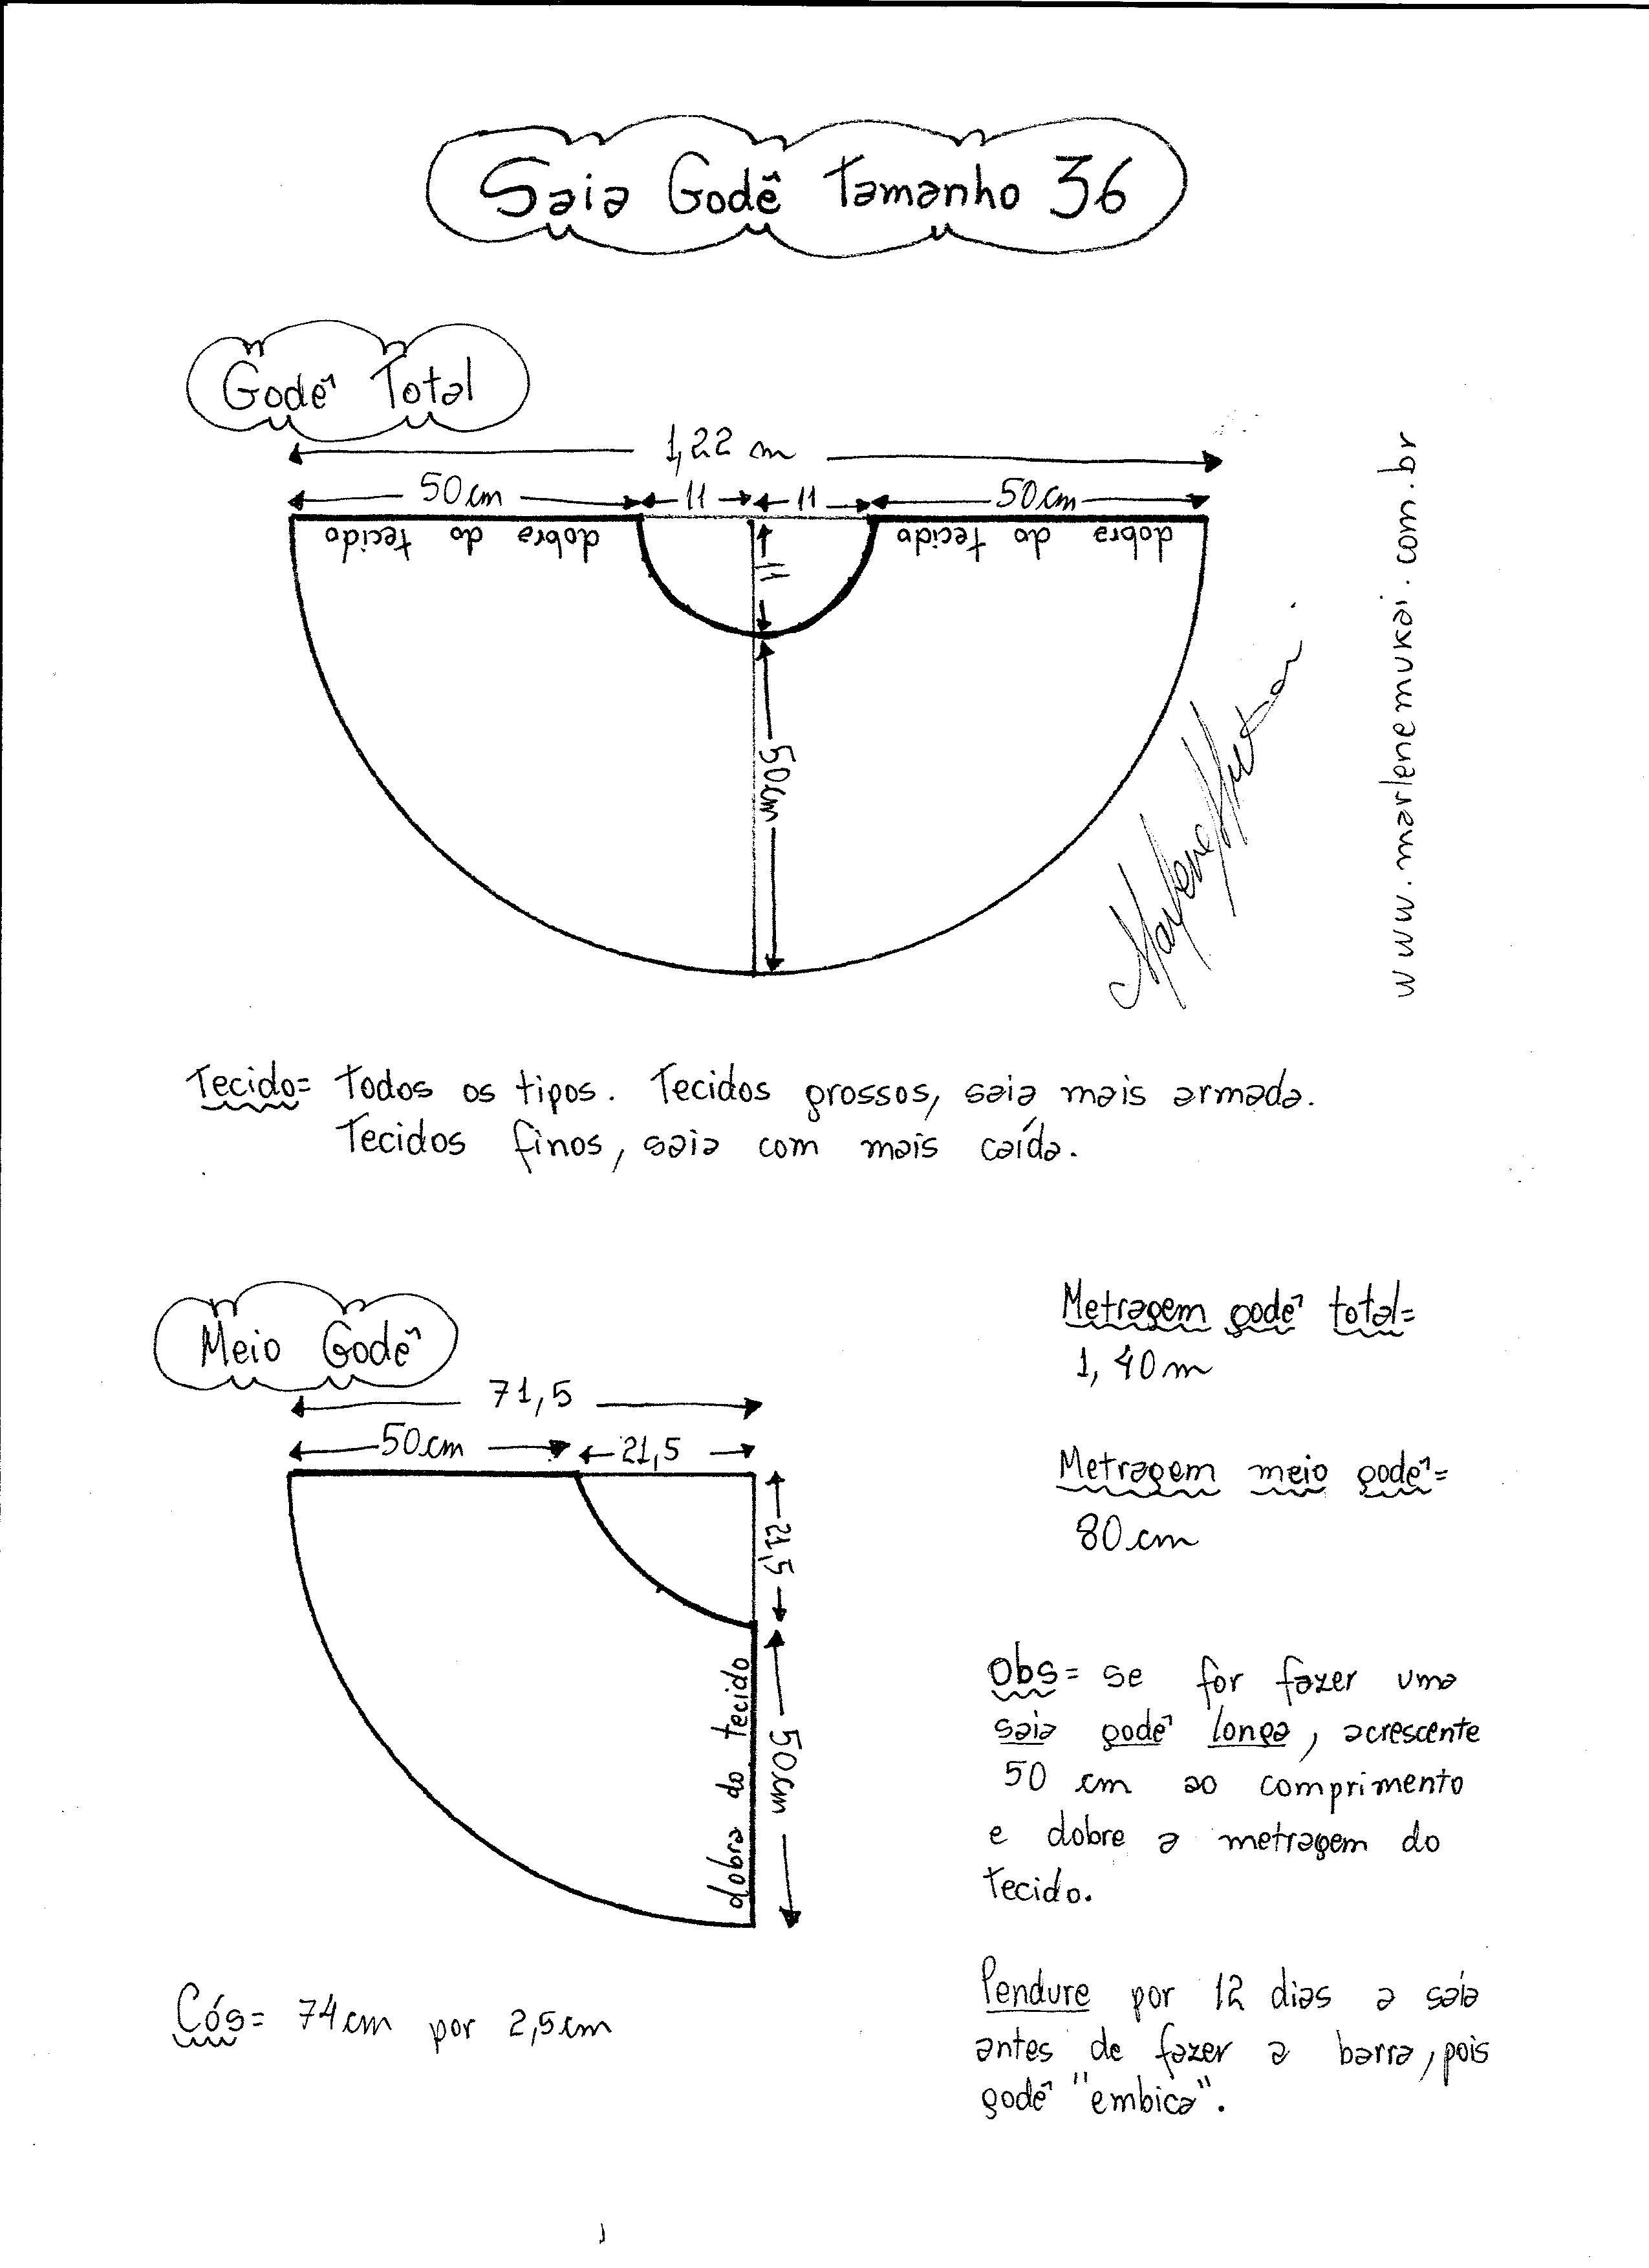 Saia Godê Tamanho 36
Godê Total
1,22 m
50cm 11 11 50cm
dobra do tecido dobra do tecido
11
50cm
www.marlenemukai.com.br
Tecido= Todos os tipos. Tecidos grossos, saia mais armada.
Tecidos finos, saia com mais caída.
Meio Godê
71,5
50cm 21,5
21,5
50cm
dobra do tecido
Cós= 74cm por 2,5cm
Metragem godê total=
1,40m
Metragem meio godê=
80cm
Obs= se for fazer uma
saia godê longa, acrescente
50 cm ao comprimento
e dobre a metragem do
tecido.
Pendure por 12 dias a saia
antes de fazer a barra, pois
godê "embica".